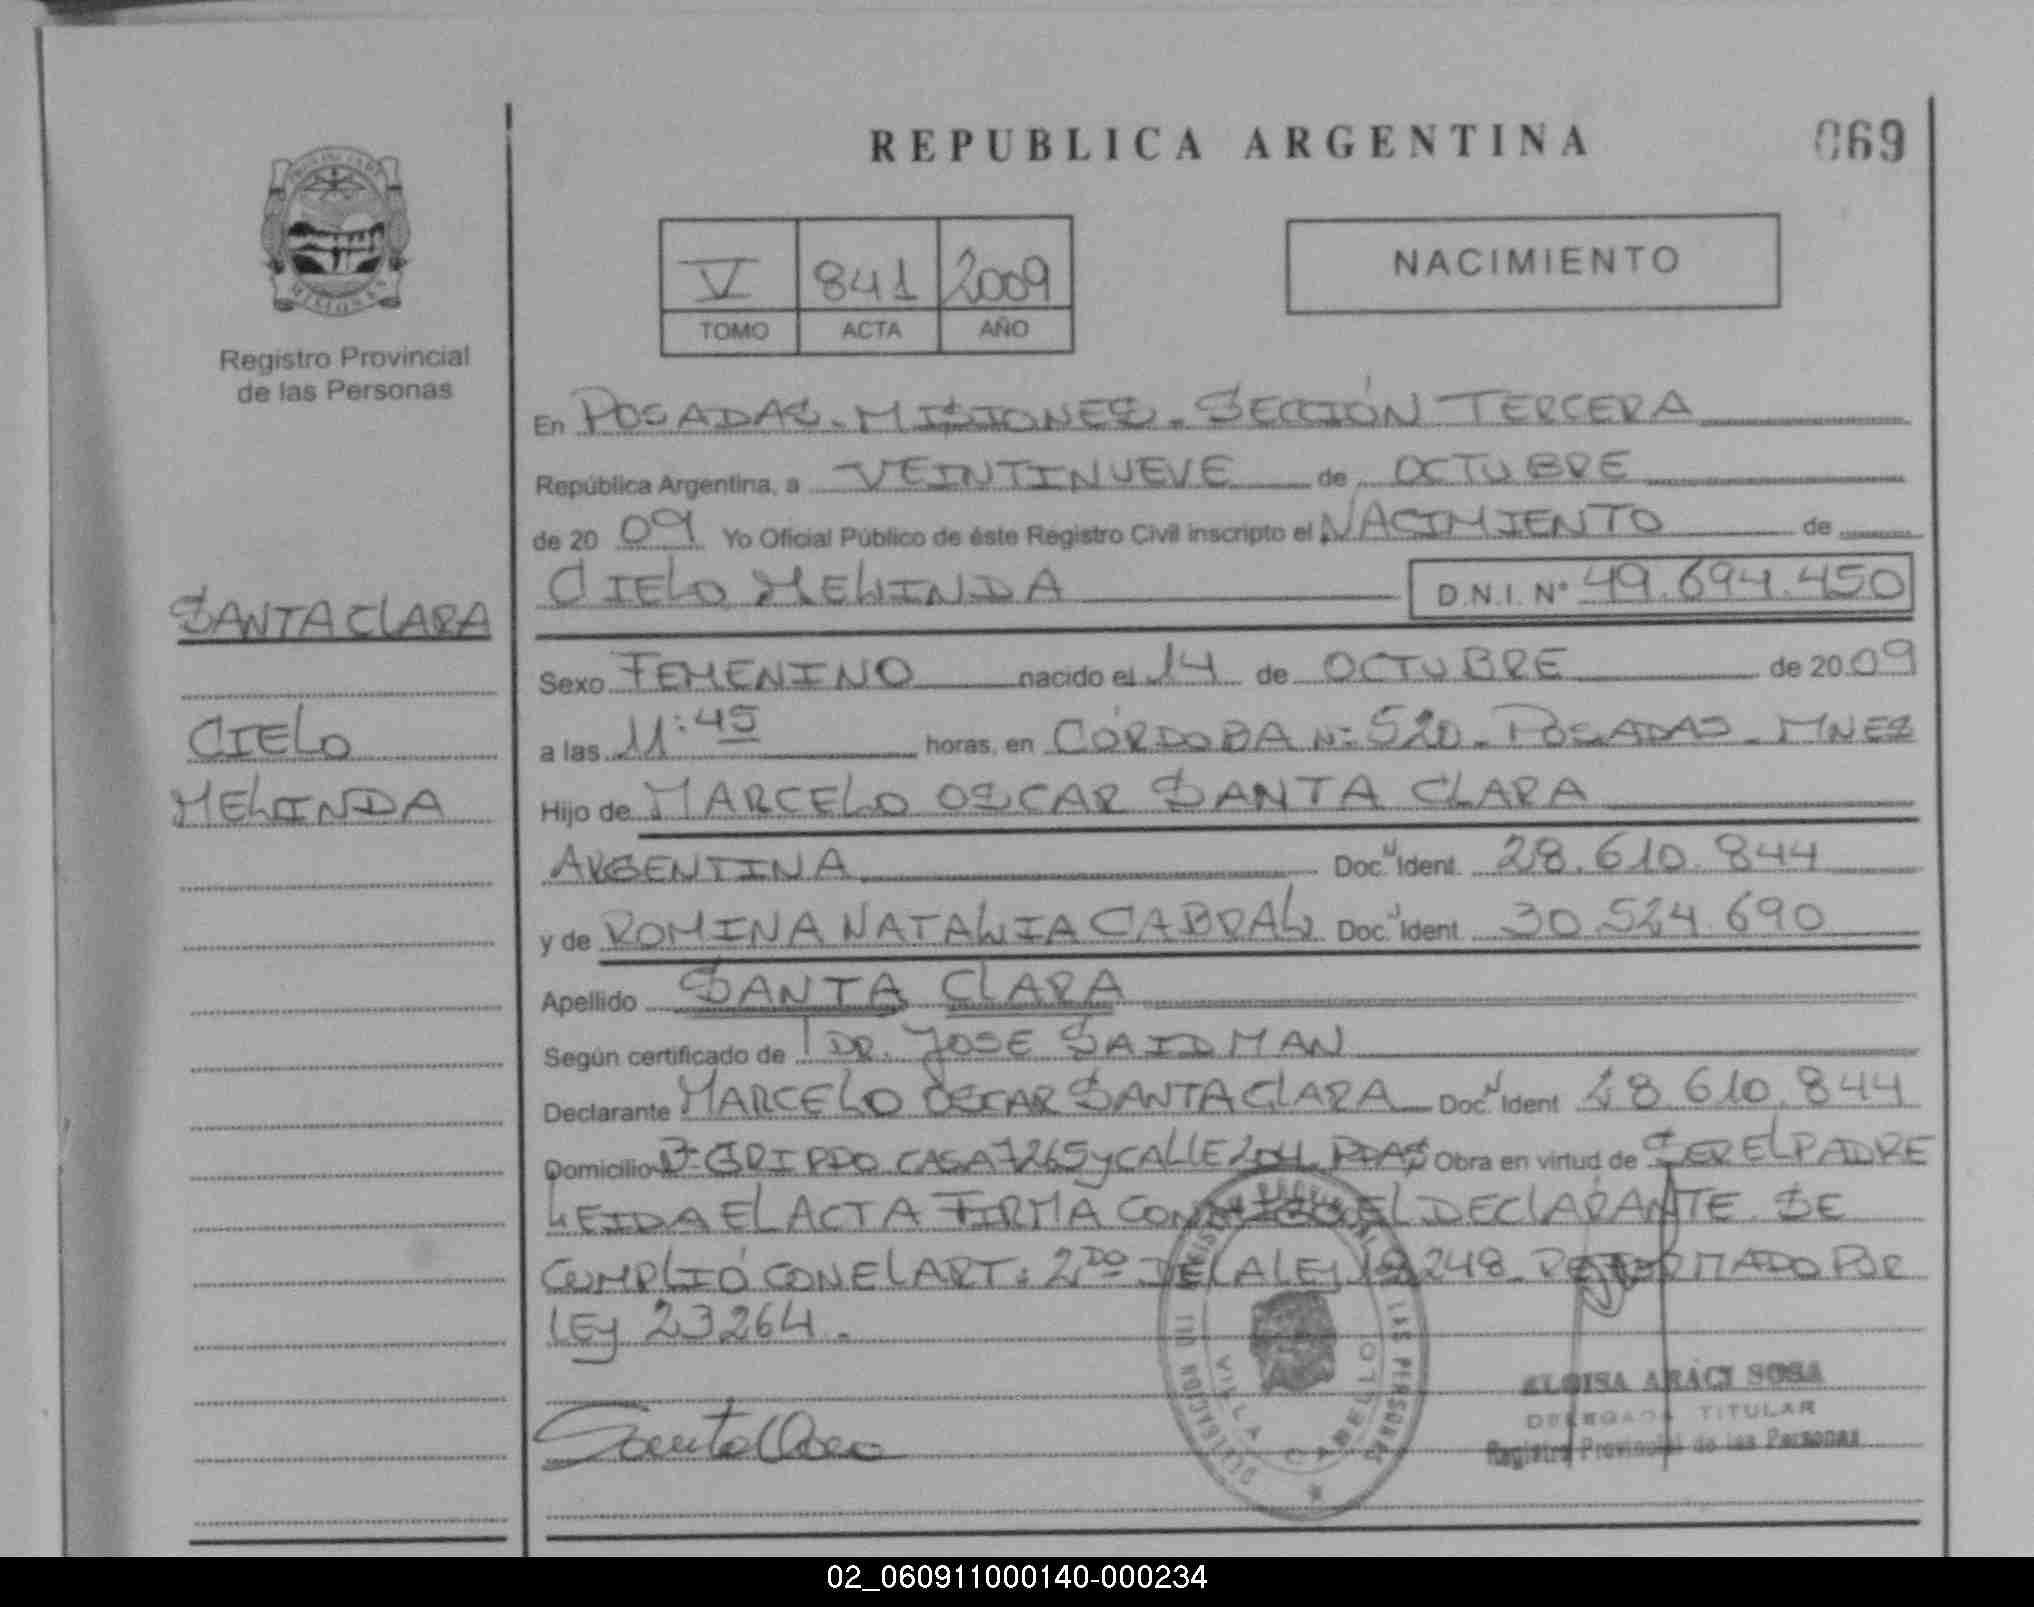 REPUBLICA ARGENTINA
069
V 841 2009
TOMO ACTA AÑO
NACIMIENTO
Registro Provincial
de las Personas
SANTA CLARA
CIELO
MELINDA
En POSADAS - MISIONES - SECCIÓN TERCERA
República Argentina, a VEINTINUEVE de OCTUBRE
de 20 09 Yo Oficial Público de éste Registro Civil inscripto el NACIMIENTO de
CIELO MELINDA D.N.I. N° 49.694.450
Sexo FEMENINO nacido el 14 de OCTUBRE de 20 09
a las 11:45 horas, en CÓRDOBA Nº 520 - POSADAS - MNES
Hijo de MARCELO OSCAR SANTA CLARA
ARGENTINA Doc. Ident. 28.610.844
y de ROMINA NATALIA CABRAL Doc. Ident. 30.524.690
Apellido SANTA CLARA
Según certificado de DR. JOSE SAIDMAN
Declarante MARCELO OSCAR SANTA CLARA Doc. Ident 28.610.844
Domicilio CASA 7265 y CALLE 204 PDAS Obra en virtud de SER EL PADRE
LEIDA EL ACTA FIRMA CONMIGO EL DECLARANTE. SE
CUMPLIÓ CON EL ART. 2DO DE LA LEY 18248 REFORMADO POR
LEY 23264.
SantaClara
VILLA CABELLO
DE LAS PERSONAS
ELOISA ARACI SOSA
DELEGADA TITULAR
Registro Provincial de las Personas
02_060911000140-000234